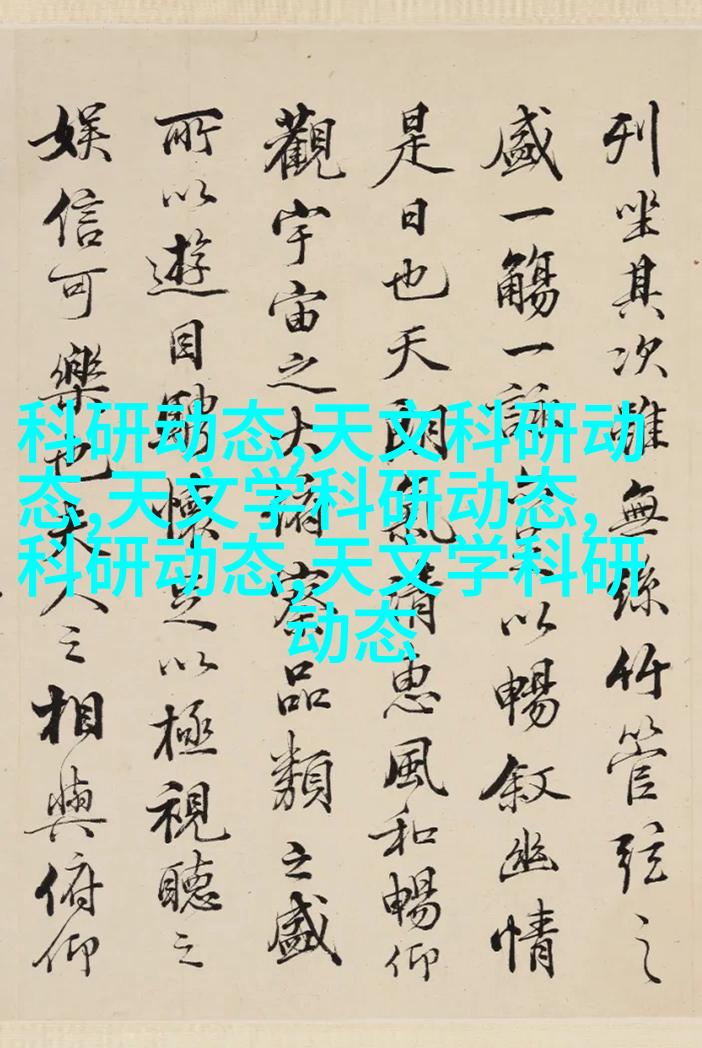 列坐其次雖無絲竹管弦之
盛一觴一詠亦足以暢叙幽情
是日也天朗氣清惠風和暢仰
觀宇宙之大俯察品類之盛
所以遊目騁懷足以極視聽之
娛信可樂也夫人之相與俯仰
科研动态,天文科研动
态,天文学科研动态,
科研动态,天文学科研
动态